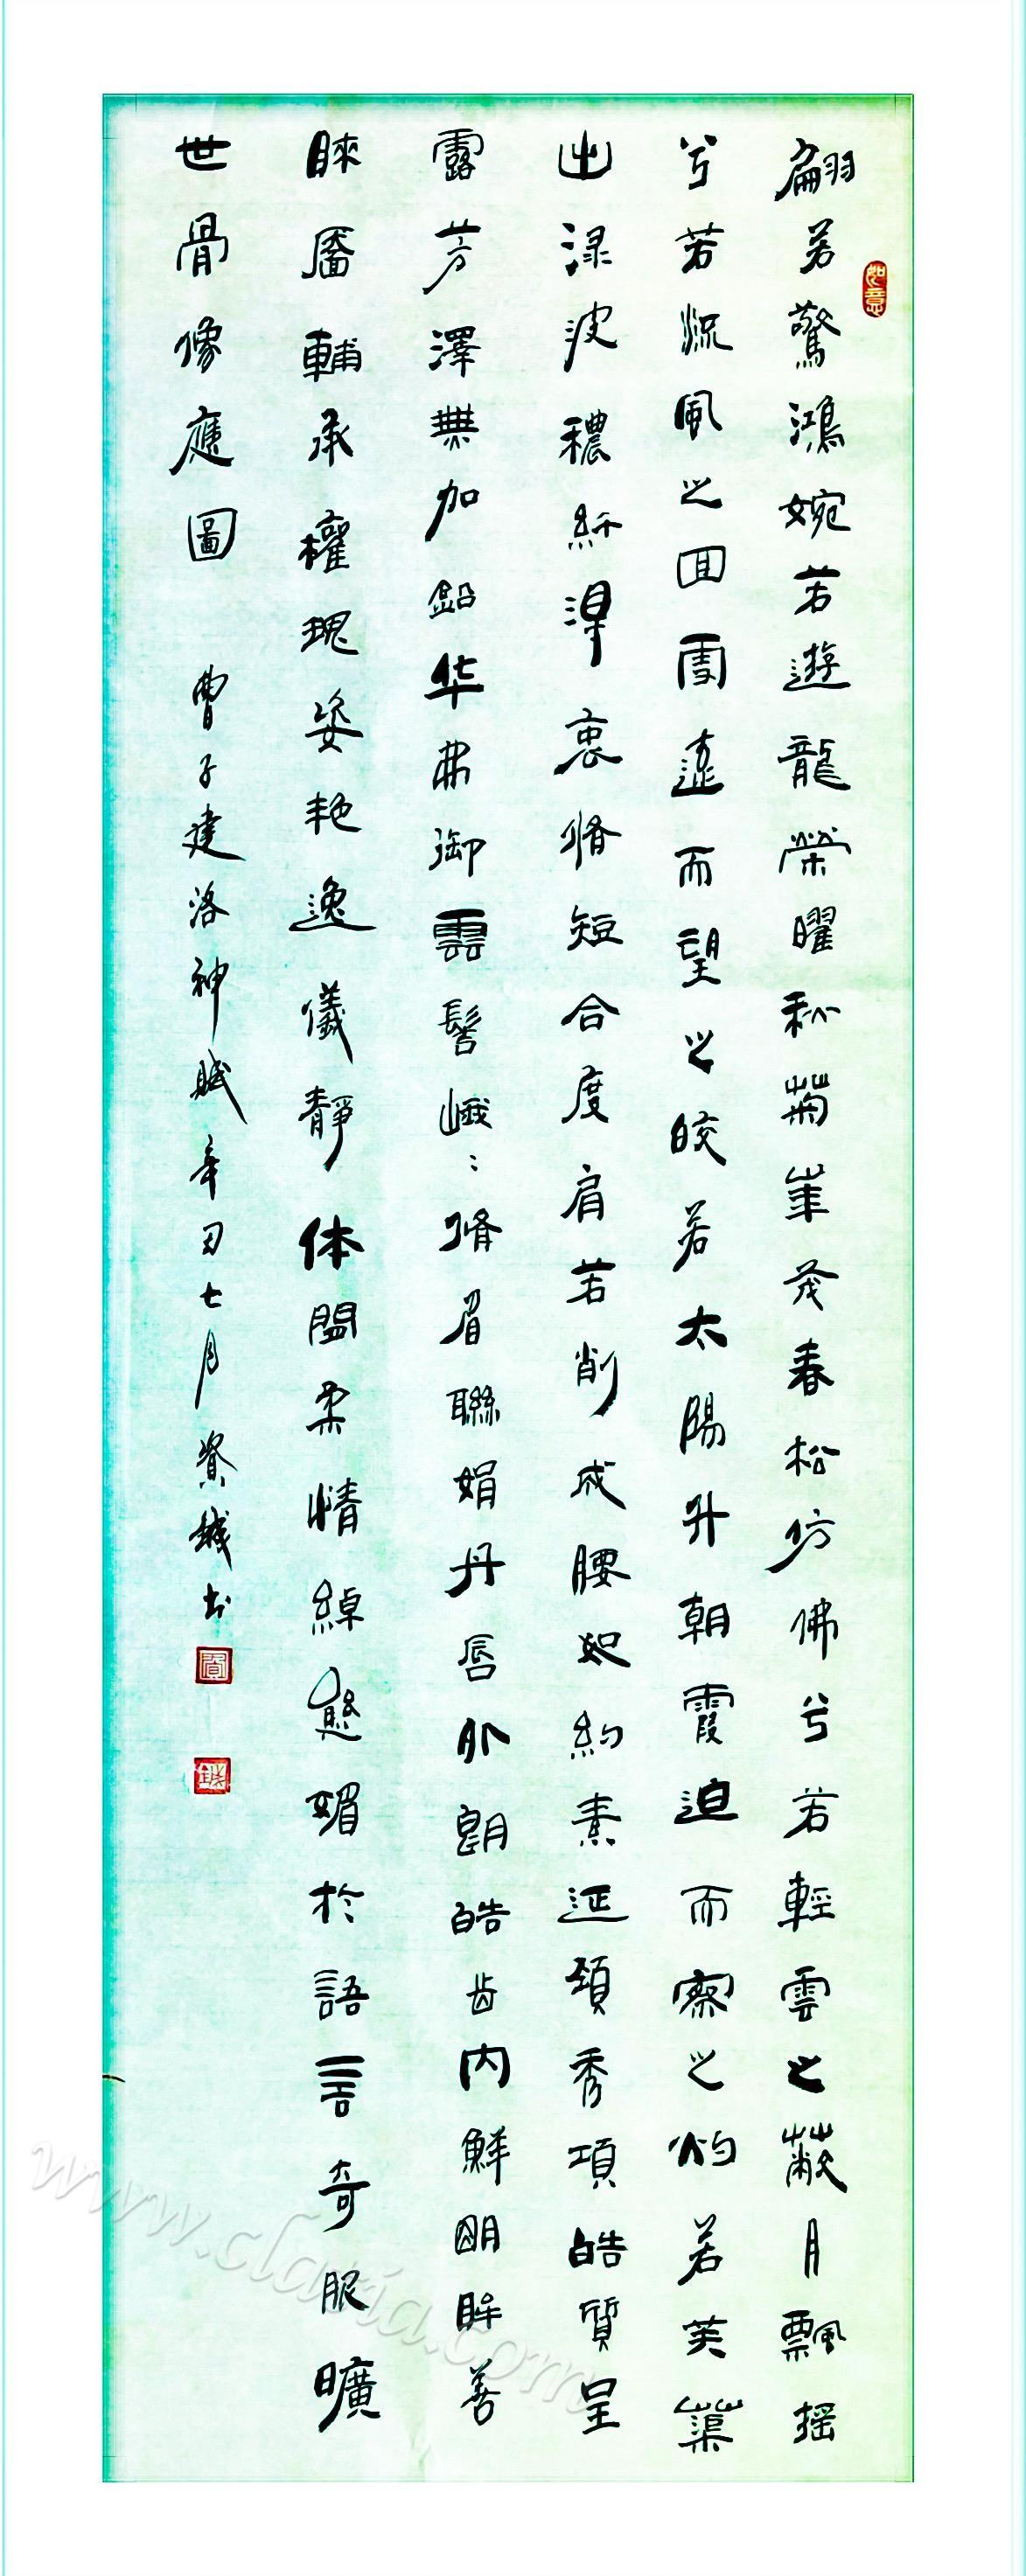 翩若驚鴻婉若遊龍榮曜秋菊華茂春松仿佛兮若輕雲之蔽月飄摇
兮若流風之回雪遠而望之皎若太陽升朝霞迫而察之灼若芙蕖
出渌波穠纤得衷脩短合度肩若削成腰如約素延頸秀項皓質呈
露芳澤無加鉛华弗御雲髻峨峨脩眉聯娟丹唇外朗皓齿内鮮明眸善
睞靨輔承權瑰姿艳逸儀靜体閑柔情綽態媚於語言奇服曠
世骨像應圖 曹子建洛神賦辛丑七月賓鉞书
如意
www.clavia.com